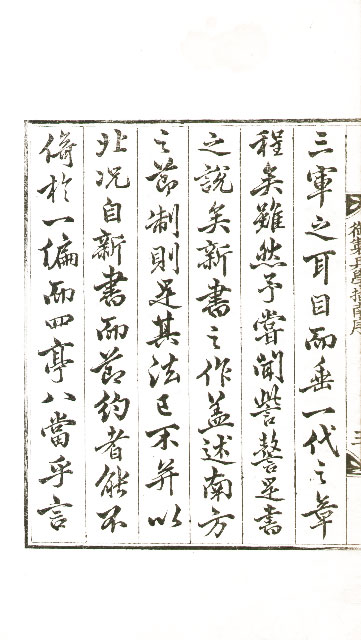 三軍之耳目而垂一代之章
程矣雖然予嘗聞訾警是書
之說矣新書之作蓋述南方
之節制則是其法已不并以
北况自新書而節約者能不
倚於一偏而四亭八當乎言